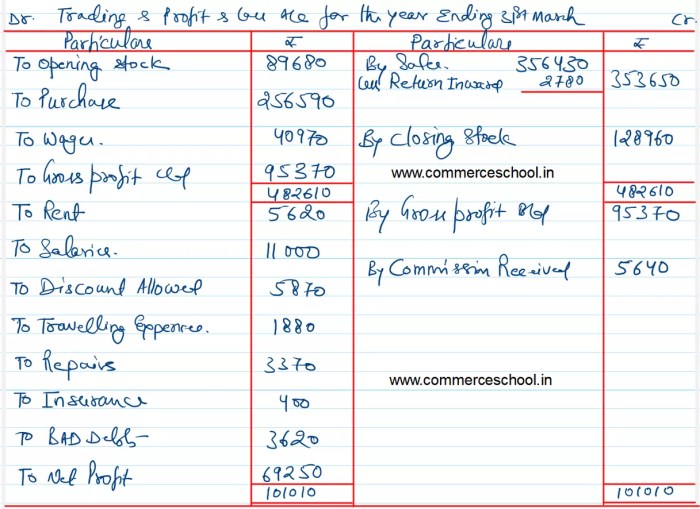 Dr. Trading & Profit & Loss A/c for the year Ending 31st March Cr.
Particulars ₹ Particulars ₹
To Opening stock 89680 By Sales. 356430
Less Return Inward 2780 353650
To Purchase 256590
To Wages. 40970 By Closing Stock 128960
To Gross profit c/d 95370 www.commerceschool.in
482610 482610
To Rent 5620 By Gross profit b/d 95370
To Salaries. 11000
By Commission Received 5640
To Discount Allowed 5870
To Travelling Expenses. 1880
To Repairs 3370
www.commerceschool.in
To Insurance 400
To BAD Debts 3620
To Net Profit 69250
101010 101010